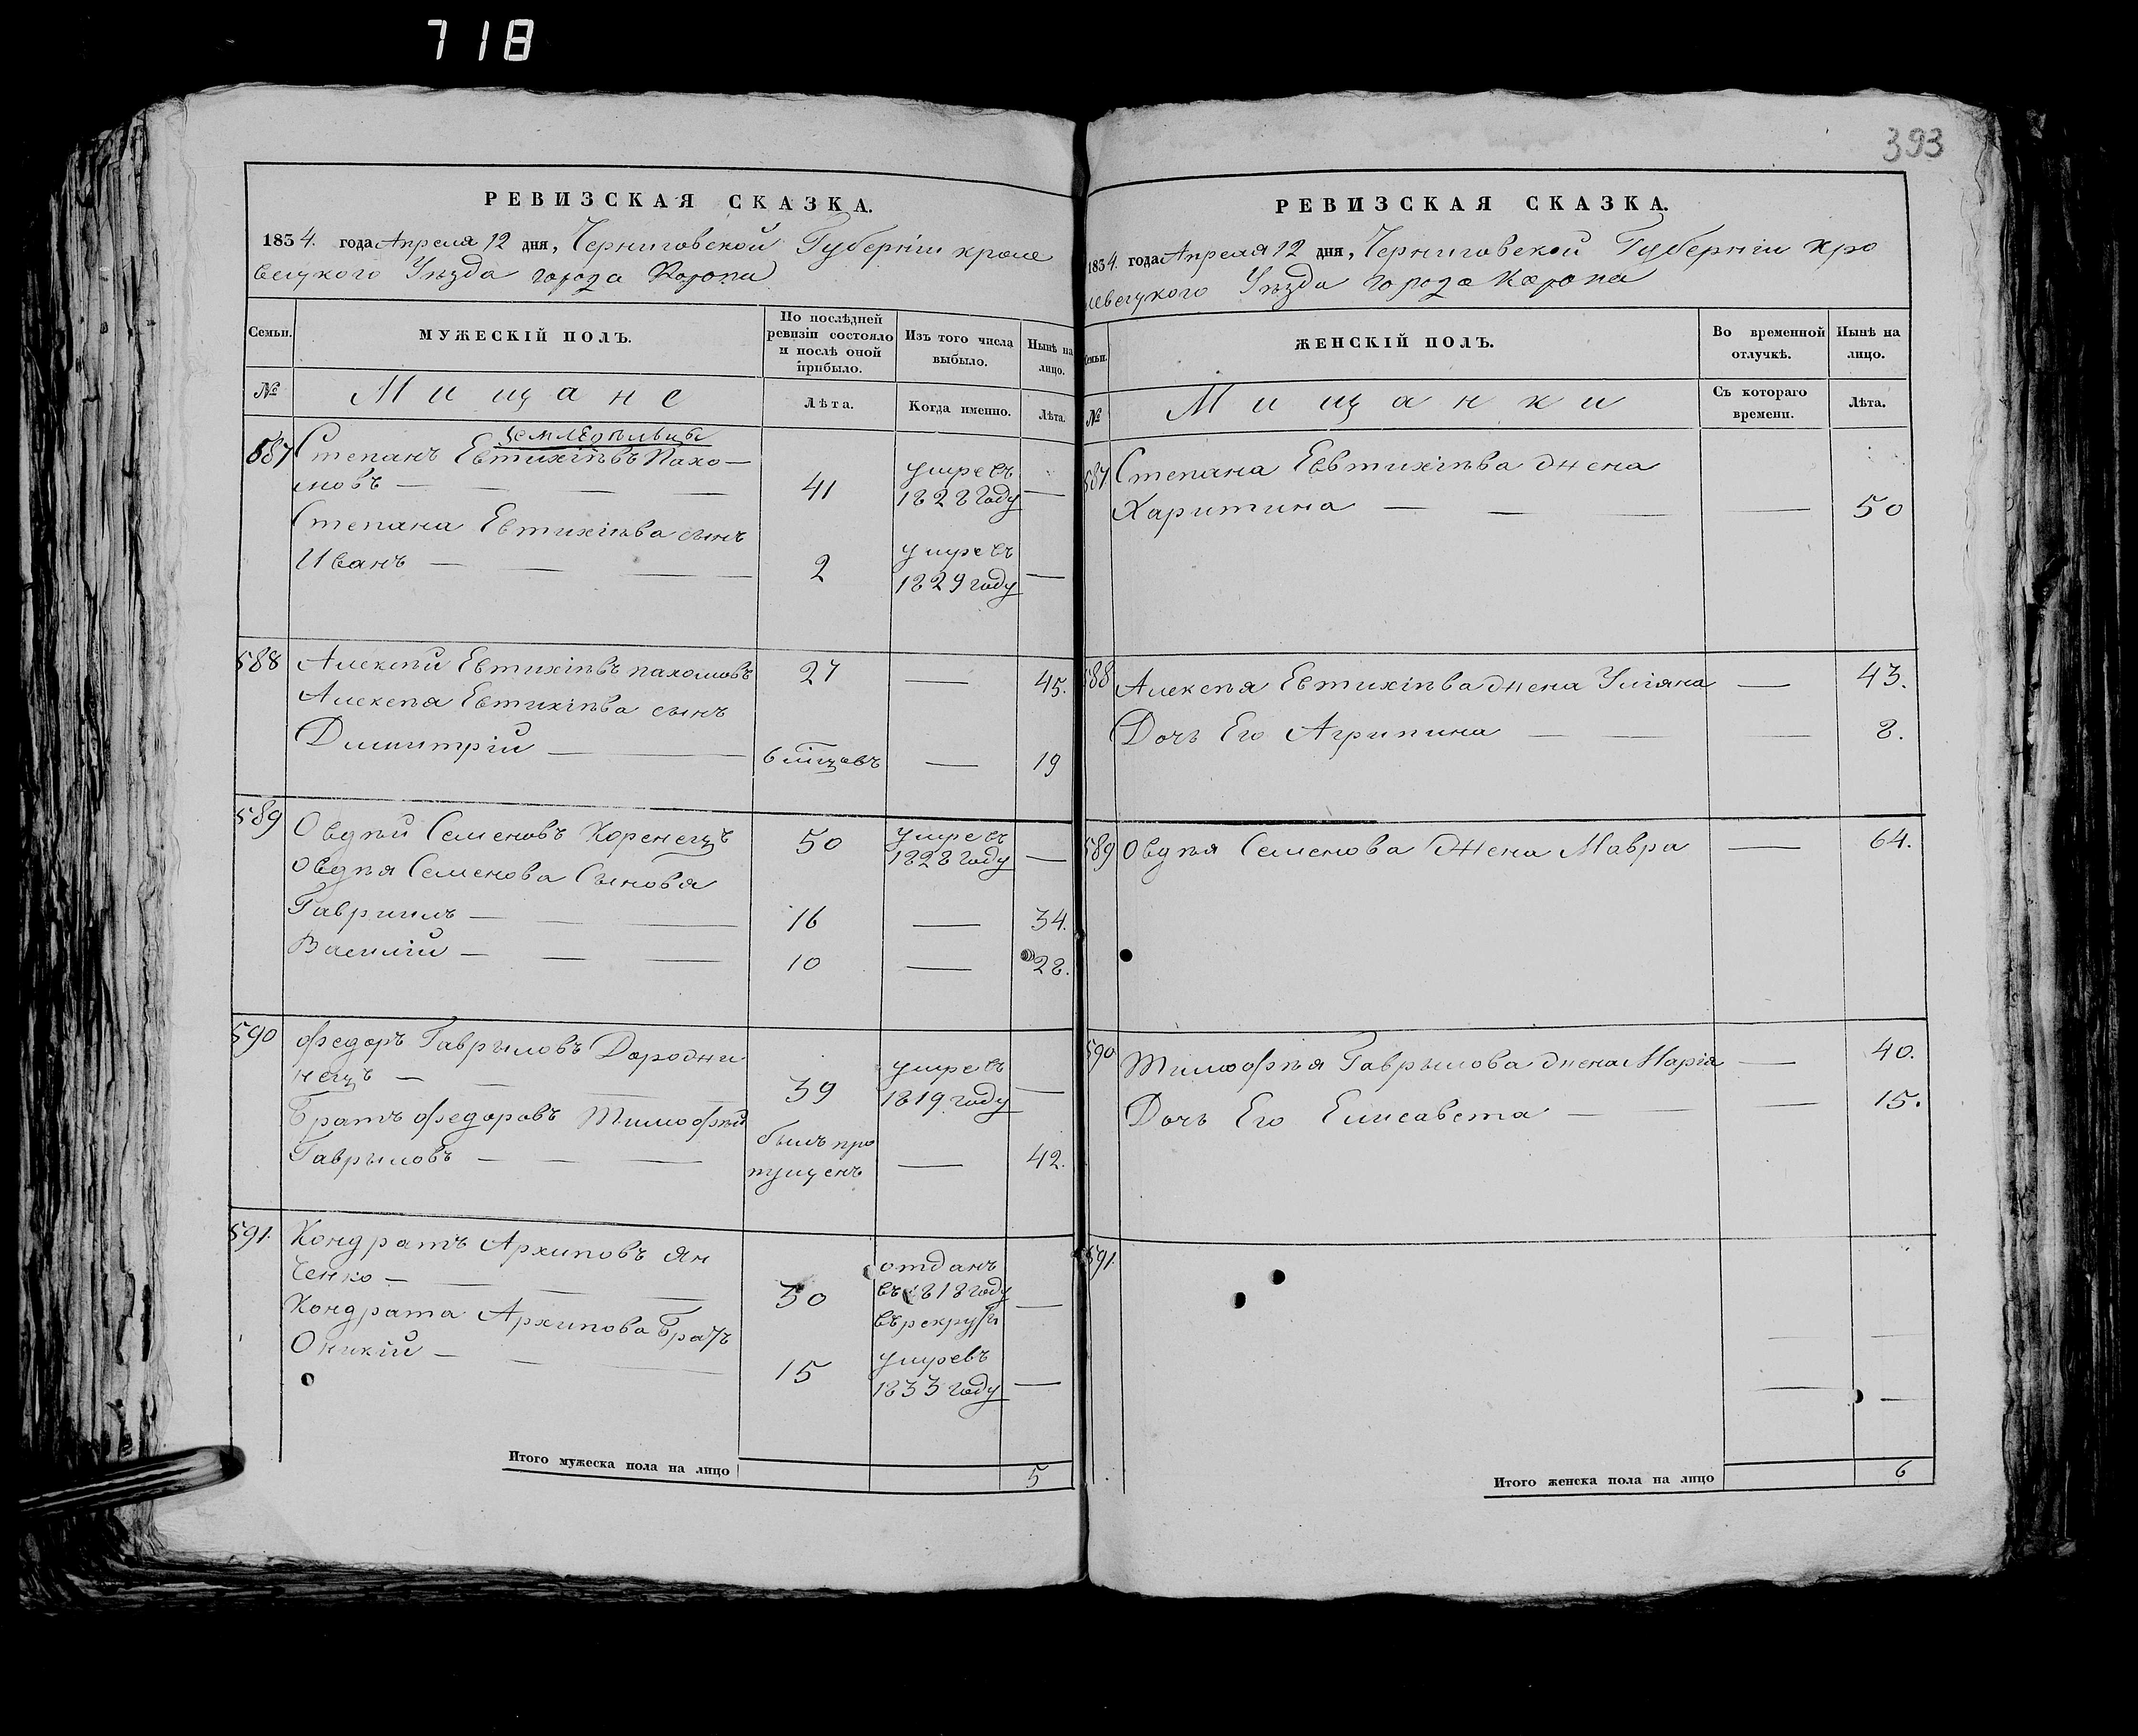 718
393
РЕВИЗСКАЯ СКАЗКА.
1834. года Апреля 12 дня, Черниговской Губернiи кроле
вецкого Уѣзда города Коропа
Семьи.
МУЖЕСКІЙ ПОЛЪ.
По послѣдней
ревизіи состояло
и послѣ оной
прибыло.
Изъ того числа
выбыло.
Нынѣ на
лицо.
№
Мищане
Лѣта.
Когда именно.
Лѣта.
земледѣльцы
587 Степанъ Евтихіѣвъ Пахо—
мовъ — 41 умревъ 1828 году —
Степана Евтихіѣва сынъ
Иванъ — 2 умревъ 1829 году —
588 Алексѣй Евтихіѣвъ пахомовъ 27 — 45.
Алексѣя Евтихіѣва сынъ
Димитрій — 6 мѣцовъ — 19
589 Овдѣй Семеновъ Коренецъ 50 умревъ 1828 году —
Овдѣя Семенова Сыновя
Гаврыилъ — 16 — 34.
Василій — 10 — 28.
590 Федоръ Гаврыловъ Дородни
нецъ — 39 умревъ 1819 году —
Братъ Федоровъ Тимофѣй
Гаврыловъ — былъ про пущенъ — 42.
591. Кондратъ Архиповъ Ян
ченко — 30 отданъ въ 1818 году въ рекруты —
Кондрата Архипова Братъ
Оникій — 15 умревъ 1833 году —
Итого мужеска пола на лицо 5
РЕВИЗСКАЯ СКАЗКА.
1834. года Апреля 12 дня, Черниговской Губернiи Кро
левецкого Уѣзда города Коропа
Семьи.
ЖЕНСКІЙ ПОЛЪ.
Во временной
отлучкѣ.
Нынѣ на
лицо.
№
Мищанки
Съ котораго
времени.
Лѣта.
587 Степана Еввтихіѣва жена
Харитина — — 50
588 Алексѣя Евтихіѣва жена Уліяна — 43.
Дочь Его Агрипина — — 8.
589 Овдѣя Семенова Жена Мавра — 64.
590 Тимофѣя Гаврылова жена Марія — 40.
Дочь Его Елисавета — — 15.
591. — —
— —
Итого женска пола на лицо 6